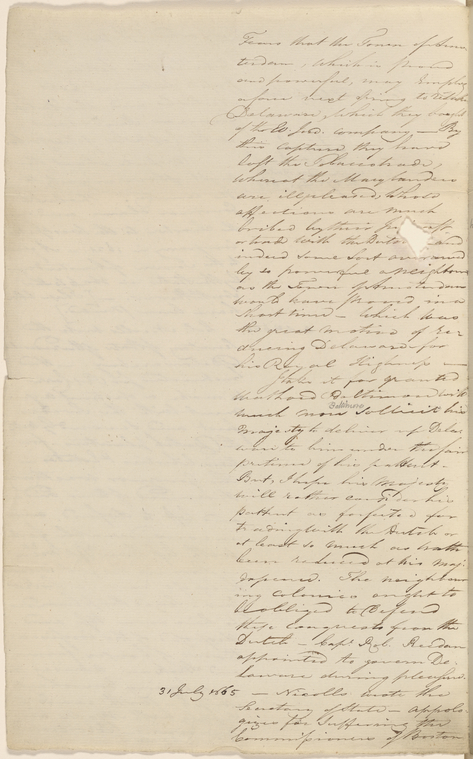 Fears that the Town of Ams
terdam, which is proud
and powerful, may employ
a force next Spring to reduce
Delaware, which they bought
of the W. Ind. company — By
this capture they have
lost the Tobacco trade,
whereat the Marylanders
are ill pleased, whose
affections are much
bribed by their
or trade with the Dutch and
indeed some sort
by so a neighbour
as the Town of Amsterdam
would have proved in a
Short time — which was
the great motive of re-
ducing Delaware for
his Royal Highness —
Takes it for granted
that Lord will
Baltimore
much more sollicit his
Majesty to deliver up Dela
ware to him under the
pretence of his patent.
But, I hope his Majesty
will rather consider his
patent as forfeited for
trading with the Dutch or
at least so much as hath
been reduced at his Maj
expence. The neighbour
ing colonies ought to
be obliged to Defend
these conquests from the
Dutch — Capt. Rob.
appointed to govern De-
laware during pleasure.
31 July 1665 — Nicolls wrote the
Secretary of State — apolo
gizes for suffering the
Commissioners of Boston